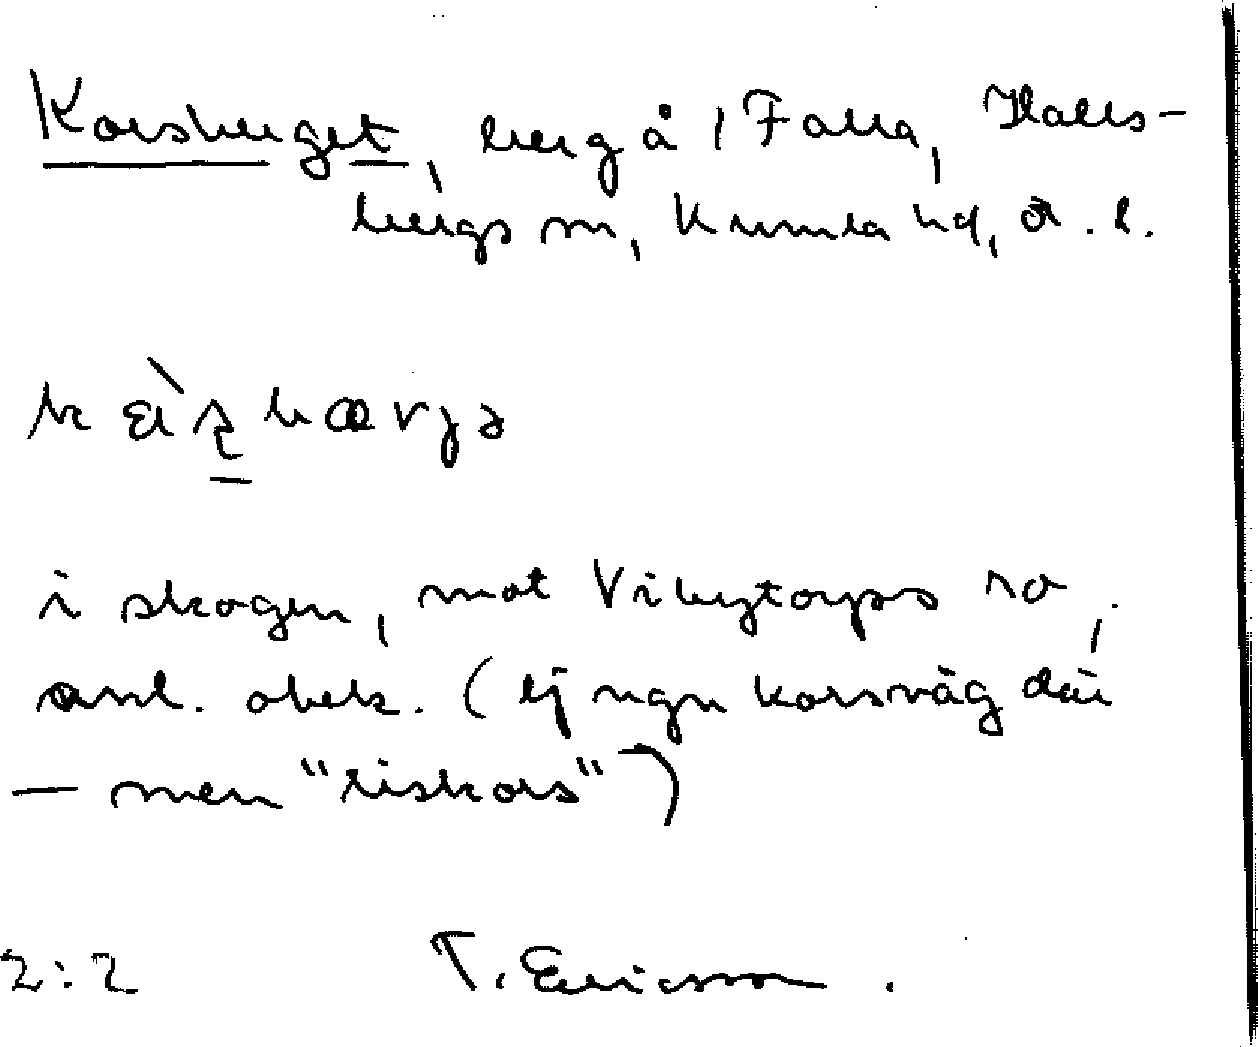 Korsberget, berg å 1 Falla, Halls-
bergs sn, Kumla hd, Ör. l.
i skogen, mot Vibytorps rå,
anl. obek. (ej ngn korsväg där
— men "liskors")
2:2 T. Ericsson.